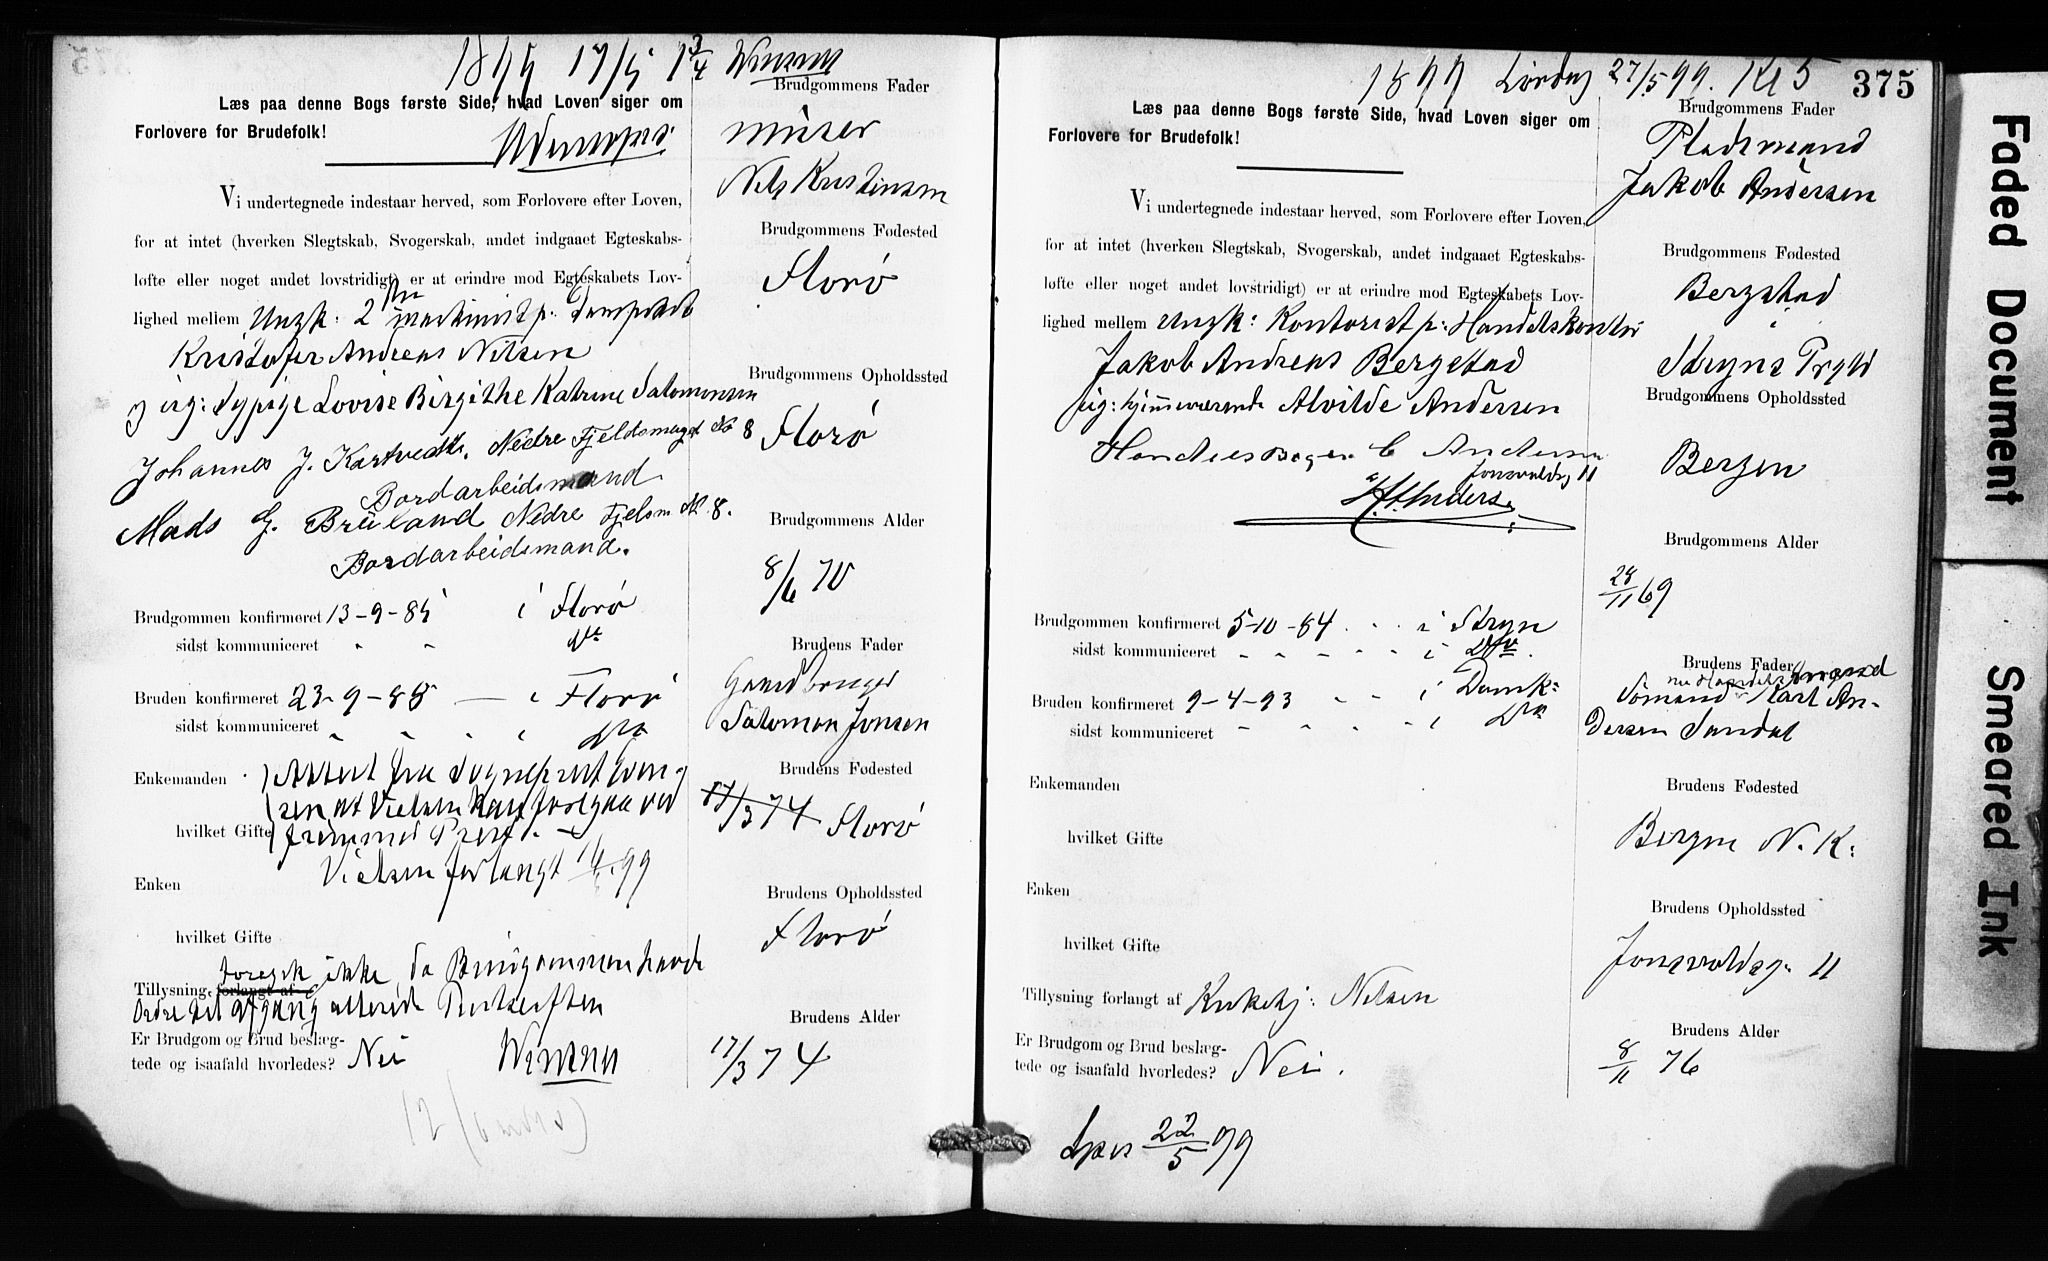 1899 17/5 1 3/4
Læs paa denne Bogs første Side, hvad Loven siger om
Forlovere for Brudefolk!
Vi undertegnede indestaar herved, som Forlovere efter Loven,
for at intet (hverken Slegtskab, Svogerskab, andet indgaaet Egteskabs-
løfte eller noget andet lovstridigt) er at erindre mod Egteskabets Lov-
lighed mellem Ungk: 2den maskinist p:
Kristofer Andreas Nilsen
og Pig: Sypige Lovise Birgithe Katrine Salomonsen
Johannes J. Kartvedt. Nedre Fjeldsmuget No 8
Bordarbeidsmand
Mads G. Breiland Nedre Fjelsm No. 8.
Bordarbeidsmand.
Brudgommen konfirmeret 13-9-85 i Florø
sidst kommuniceret " " dto
Bruden konfirmeret 23-9-88 — i Florø
sidst kommuniceret " " " " dto
Enkemanden Attest fra Sogneprest
at Vielsen kan foregaa ved
hvilket Gifte fremmed Prest. —
Vielsen forlangt 99
Enken
hvilket Gifte
foregik ikke da Brudgommen havde
Tillysning forlangt af
Ordre til afgang allerede
Er Brudgom og Brud beslæg-
tede og isaafald hvorledes? Nei
Brudgommens Fader
Nils Kristensen
Brudgommens Fødested
Florø
Brudgommens Opholdssted
Florø
Brudgommens Alder
8/6 70
Brudens Fader
Gaardbruger
Salomon Jonsen
Brudens Fødested
17/3 74 Florø
Brudens Opholdssted
Florø
Brudens Alder
17/3 74
1899 Lørdag 27/5 99. Kl 5
375
Læs paa denne Bogs første Side, hvad Loven siger om
Forlovere for Brudefolk!
Vi undertegnede indestaar herved, som Forlovere efter Loven,
for at intet (hverken Slegtskab, Svogerskab, andet indgaaet Egteskabs-
løfte eller noget andet lovstridigt) er at erindre mod Egteskabets Lov-
lighed mellem Ungk: Kontorist p: Handelskontor
Jakob Andreas Bergstad
Pig: hjemmeværende Alvilde Andersen
C Andersen
Jonsvoldsg 11
Brudgommen konfirmeret 5-10-84 . . i Stryn
sidst kommuniceret " " " " " i Dto.
Bruden konfirmeret 9-4-93 " " i Domk:
sidst kommuniceret " " " " i Dto
Enkemanden
hvilket Gifte
Enken
hvilket Gifte
Tillysning forlangt af Kirketj: Nilsen
Er Brudgom og Brud beslæg-
tede og isaafald hvorledes? Nei.
22/5 99
Brudgommens Fader
Pladsmand
Jakob Andersen
Brudgommens Fødested
Bergstad
i
Stryns Prgld
Brudgommens Opholdssted
Bergen
Brudgommens Alder
28/11 69
Brudens Fader
Sømand Karl An-
dersen Sandal
Brudens Fødested
Bergen N. K:
Brudens Opholdssted
Jonsvoldsg. 11
Brudens Alder
8/11 76
Faded Document
Smeared Ink